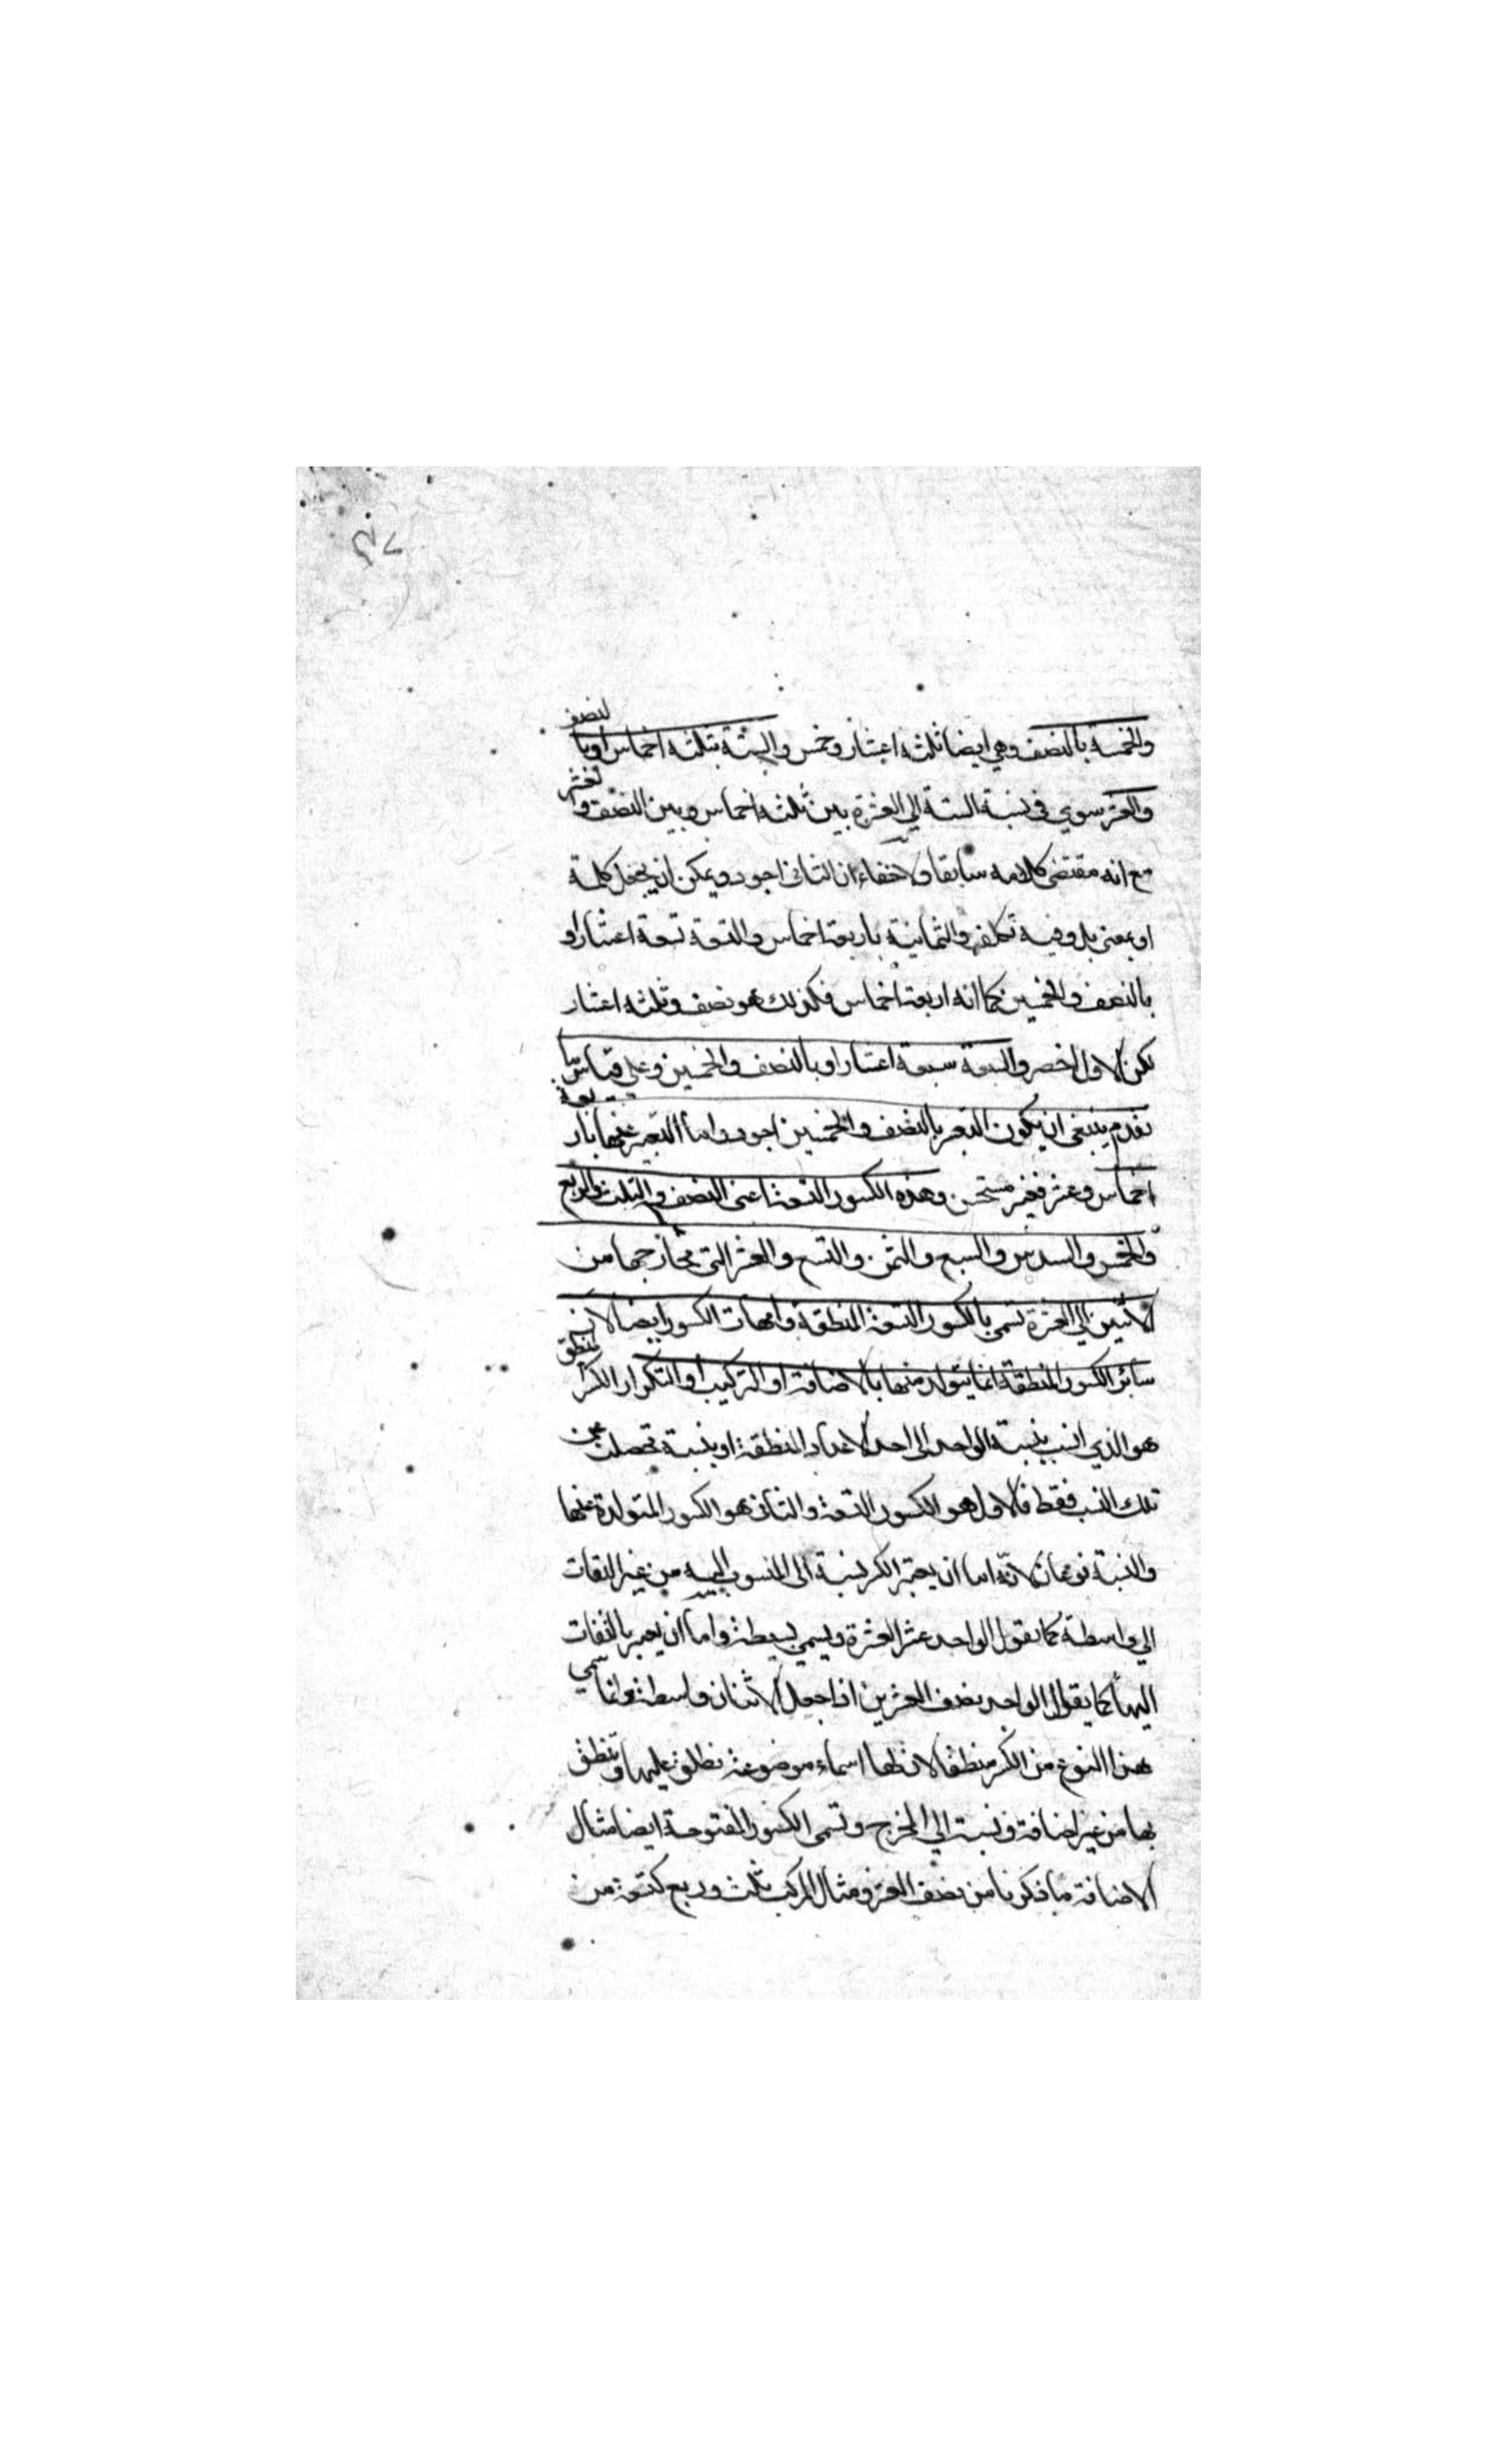 ٣٧
والخمسة بالنصف وهي ايضا ثلثة اعشار وخمس والستة بثلثة اخماس او بالنصف
والعشر سوي في نسبة الستة الي العشرة بين ثلثة اخماس وبين النصف والعشر
مع انه مقتضي كلامه سابقا ولا خفاء ان الثاني اجود ويمكن ان يجعل كلمة
او بمعني بل وفيه تكلف والثمانية باربعة اخماس والتسعة تسعة اعشار او
بالنصف والخمسين كما انه اربعة اخماس فكذلك هو نصف وثلثة اعشار
لكن الاول اخصر والسبعة سبعة اعشار او بالنصف والخمسين وعلي قياس ما
تقدم ينبغي ان يكون التعبير بالنصف والخمسين اجود واما التعبير عنها باربعة
اخماس وعشر فغير مستحسن وهذه الكسور التسعة اعني النصف والثلث والربع
والخمس والسدس والسبع والثمن والتسع والعشر التي مخارجها من
الاثنين الي العشرة تسمي بالكسور التسعة المنطقة وامهات الكسور ايضا لان
سائر الكسور المنطقة انما يتولد منها بالاضافة او التركيب او التكرار الكسر المنطق
هو الذي انسب بنسبة الواحد الي احد الاعداد المنطقة او بنسبة تحصلت عن
تلك النسب فقط فالاول هو الكسور التسعة والثاني هو الكسور المتولدة عنها
والنسبة نوعان لانه اما ان يعتبر الكسر نسبة الي المنسوب اليه من غير التفات
الي واسطة كما يقول الواحد عشر العشرة ويسمي بسيطة واما ان يعبر بالتفات
اليها كما يقول الواحد نصف العشرين اذا جعل الاثنان واسطة وانما سمي
هذا النوع من الكسر منطقا لان لها اسماء موضوعة تطلق عليها وتنطق
بها من غير اضافة ونسبة الي المخرج وتسمي الكسور المفتوحة ايضا مثال
الاضافة ما ذكرنا من نصف العشر ومثال المركب ثلث وربع كتسعة من